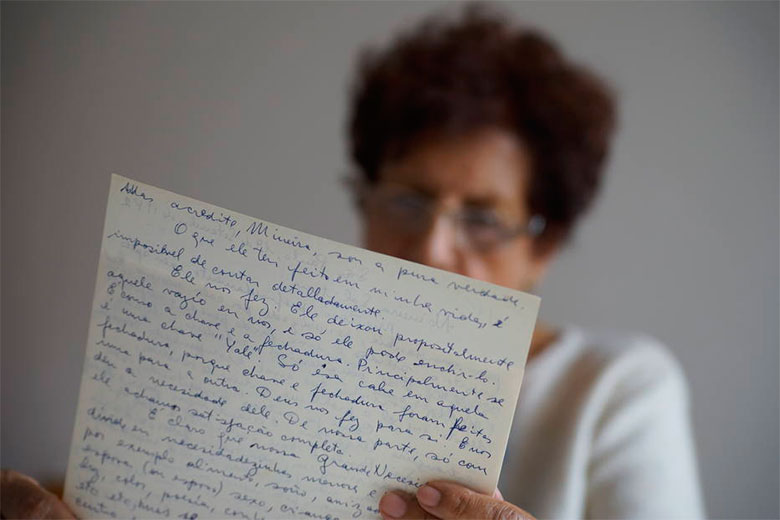 Mas acredite, Mineira, son a pura verdade.
O que ele ten feito em minha vida, é
imposível de contar detalladamente
Ele nos fez. Ele deixou propositalmente
aquele vazio en nos, e só ele pode enchirlo.
É como a chave e a fechadura. Principalmente se
é uma chave "Yale". Só esa cabe em aquela
fechadura, porque chave e fechadura foram feitas
uma para a outra. Deus nos fez para si. E nos
deu a necessidade dele. De nossa parte, só com
ele achamos satisfação completa.
É claro que nossa Grande Necesi
divide en necesidadezinhas menores e
por exemplo alimento, sono,
esposa (ou esposo) sexo,
luz, calor, poesia,
etc etc,